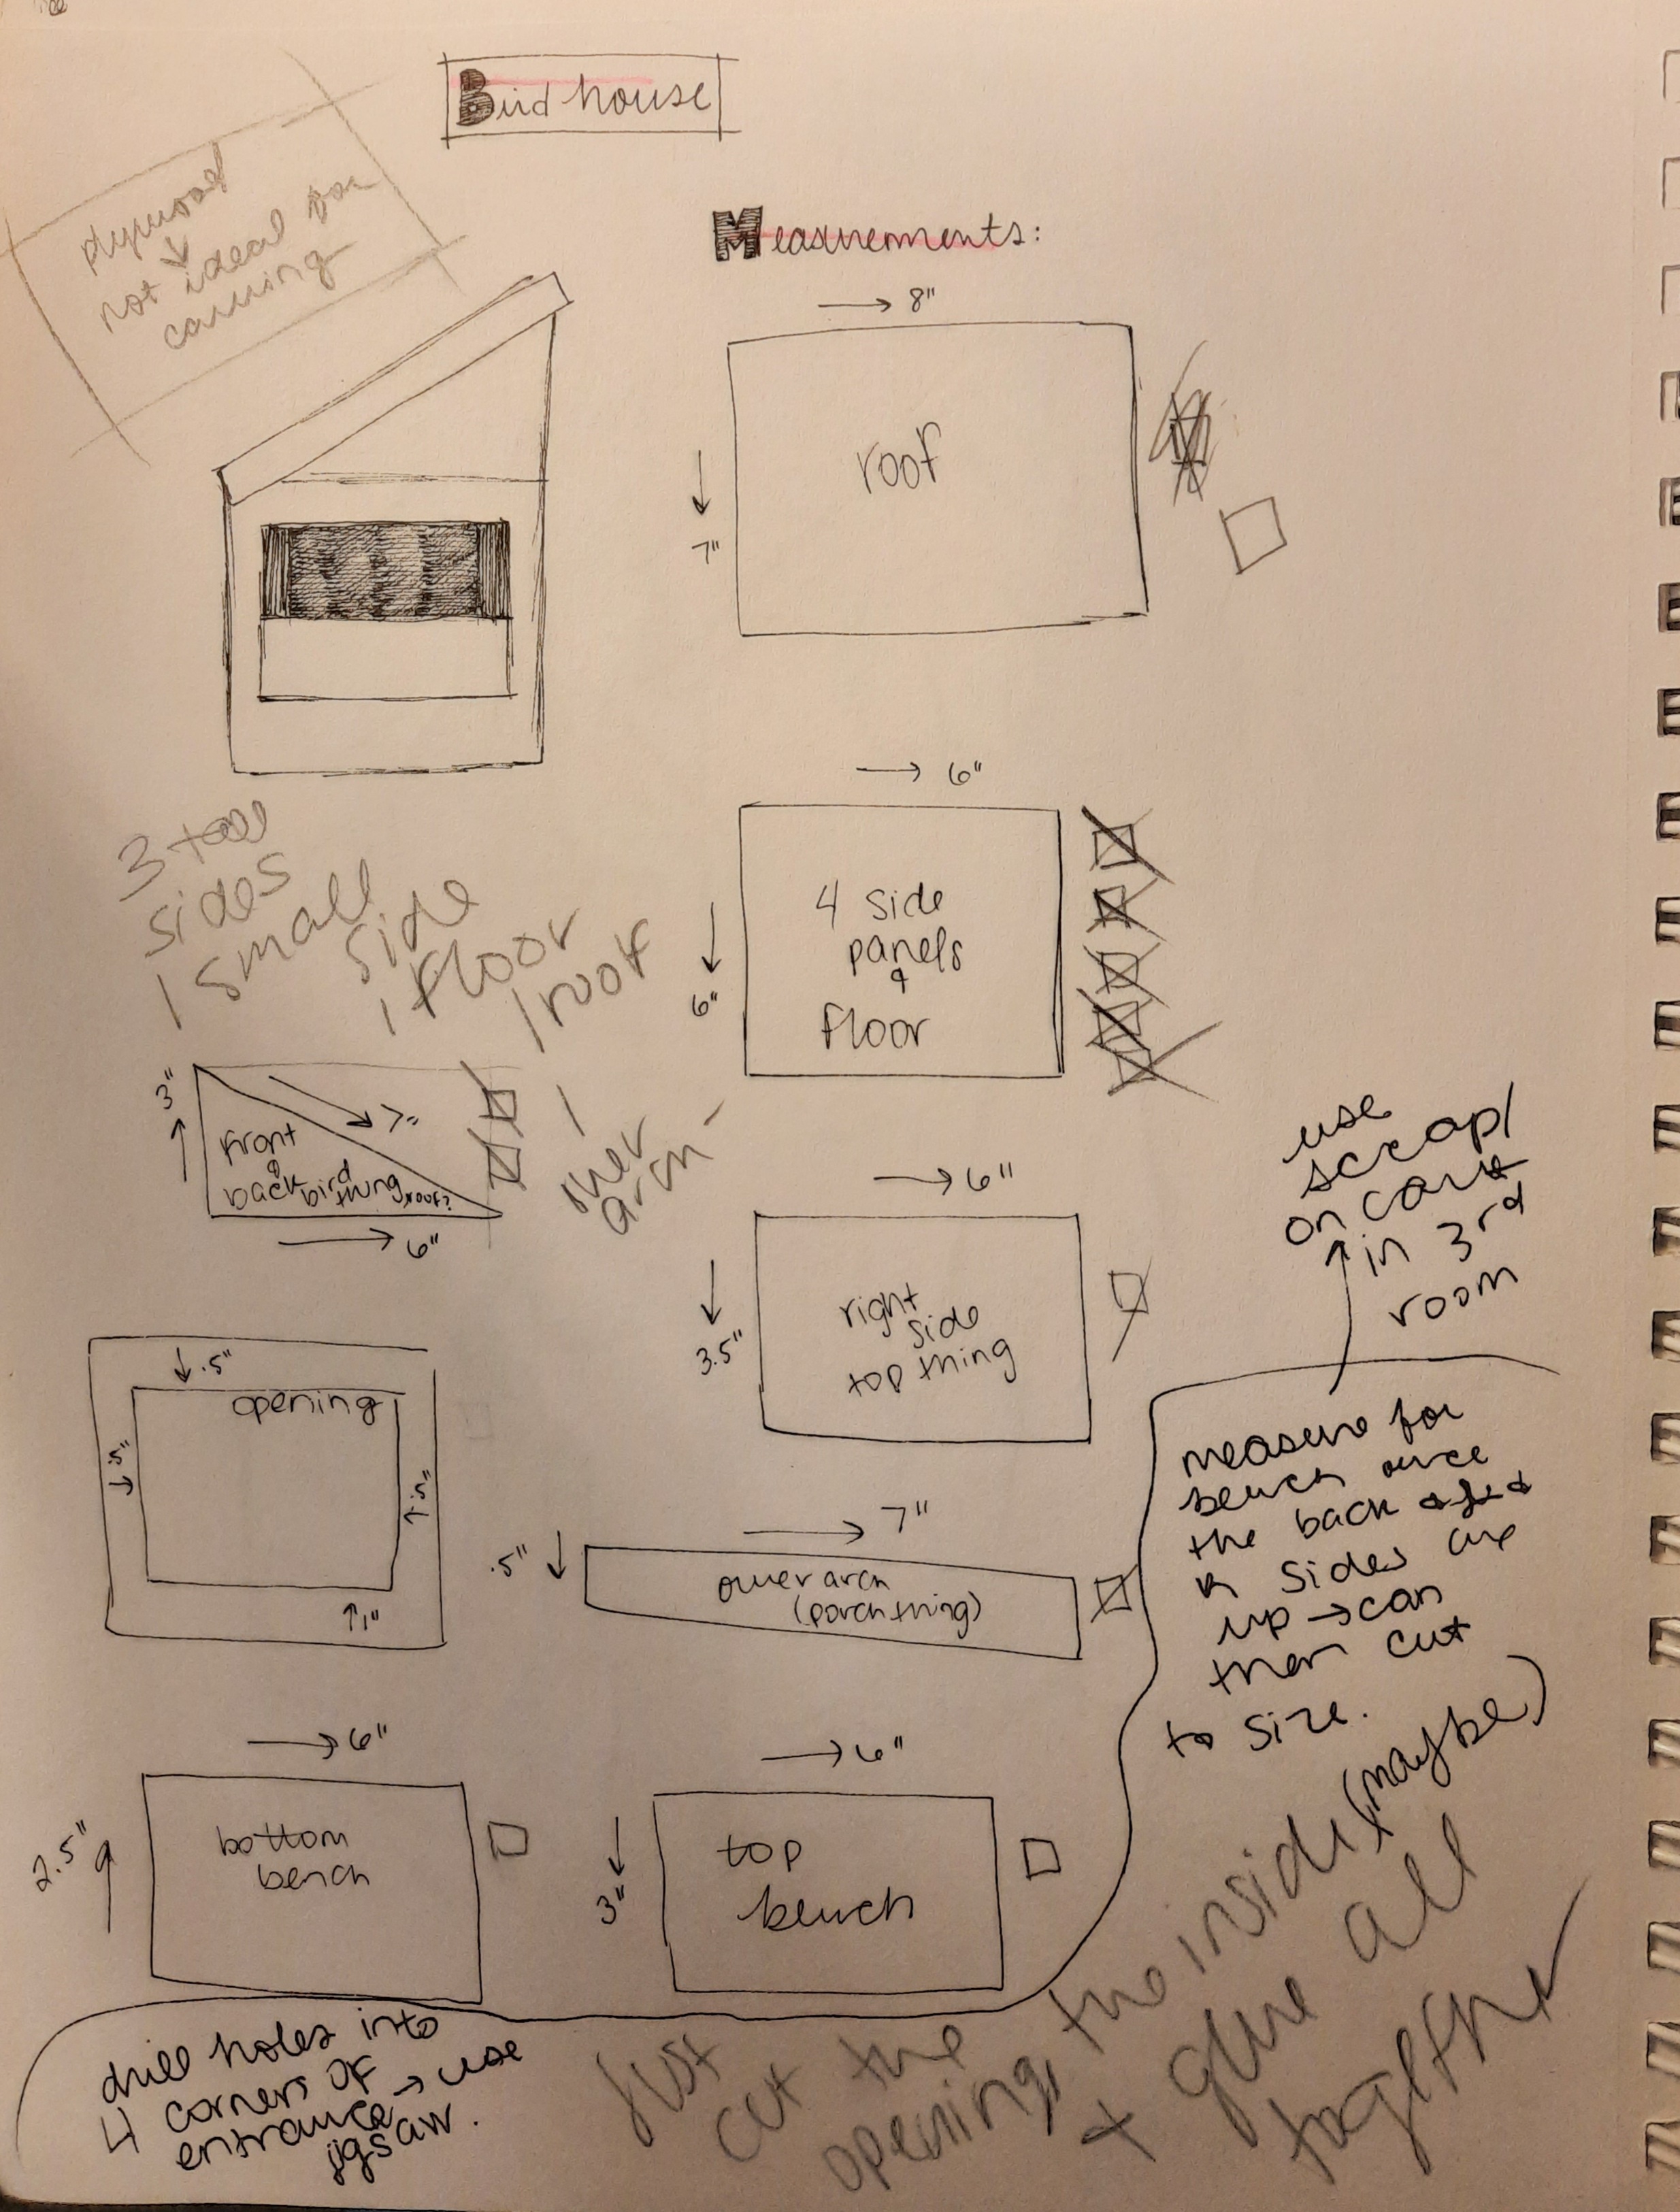 Birdhouse
plywood
↓
not ideal for
carving
Measurements:
→ 8"
↓
7"
roof
→ 6"
↓
6"
4 side
panels
&
floor
3 tall
sides
1 small
side
1 floor
1 roof
1
over
arch
3"
↑
7"
front
&
back bird
thing roof?
→ 6"
→ 6"
↓
3.5"
right
side
top thing
use
scrap/
on cart
in 3rd
room
↓ .5"
opening
.5"
↓
↑ .5"
↑ 1"
→ 7"
.5" ↓
over arch
(porch thing)
measure for
bench once
the back
sides are
up → can
then cut
to size.
(maybe)
→ 6"
2.5"
bottom
bench
→ 6"
↓
3"
top
bench
drill holes into
4 corners of
entrance → use
jigsaw.
Just
cut the
opening, the inside,
+ glue all
together